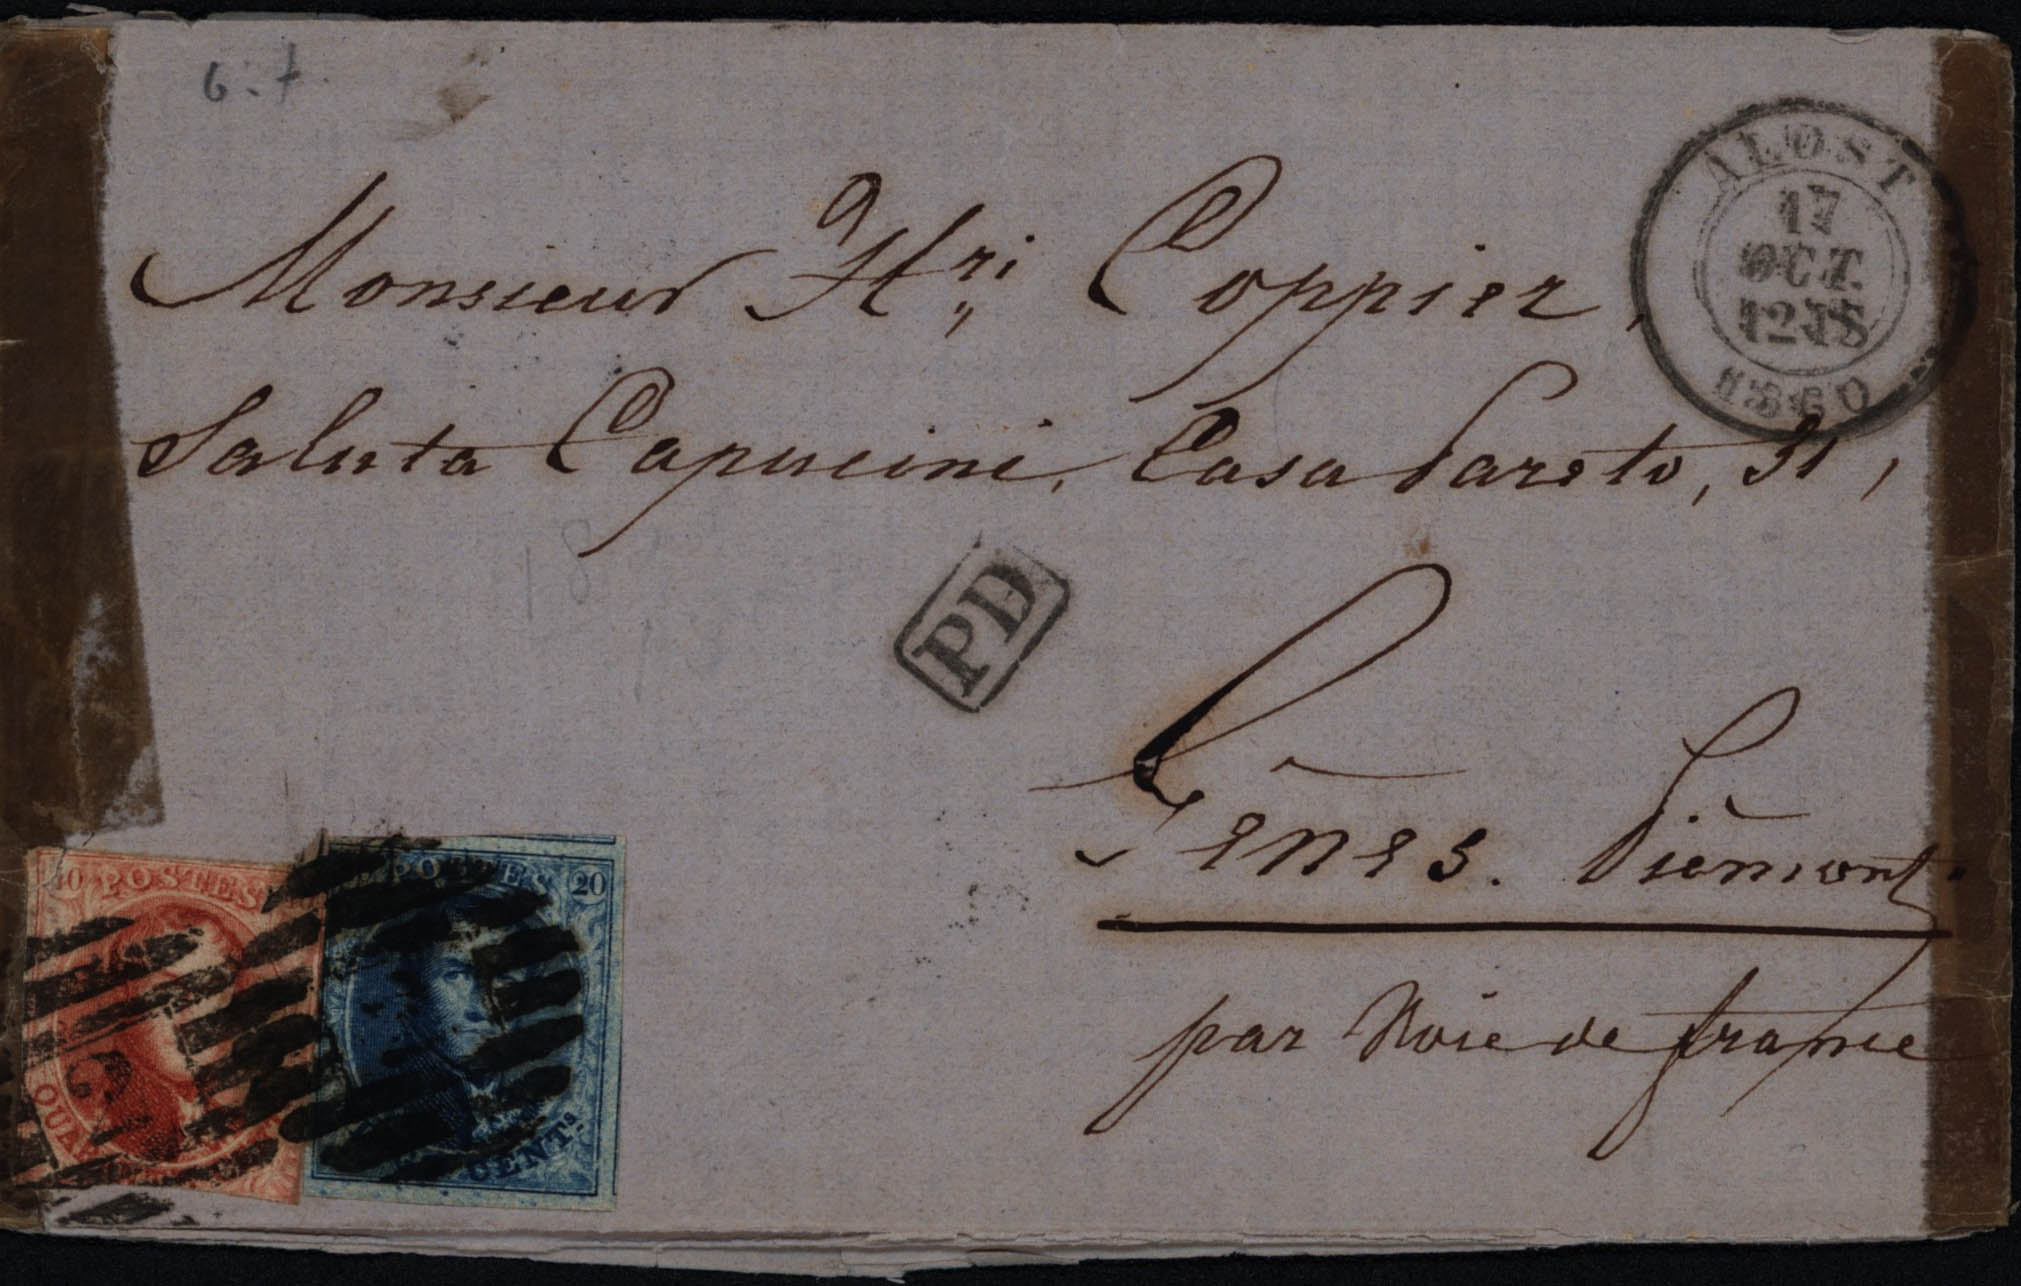 6.t
ALOST
17
OCT.
12 1S
1860
Monsieur Hri Coppier,
Saluta Capucini, Casa Pareto, 31,
PD
18
Gênes. Piémont.
par Voie de france
40 POSTES
QUA
POSTES 20
CENTS.